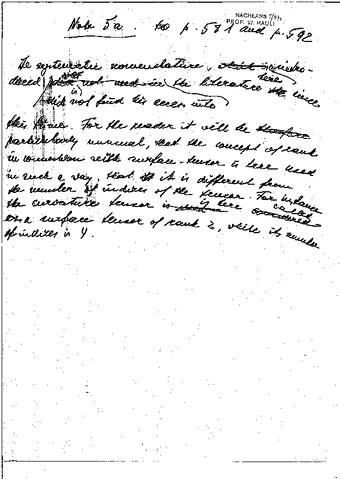 Note 5a to p. 581 and p. 592
NACHLASS
PROF. W. PAULI
The systematic nomenclature, which intro-
duced here is not used in the literature since
did not find his ever into
this time. For the reader it will be therefore
particularly unusual, that the concept of rank
in connection with surface-tensor is here used
in such a way, that it is different from
the number of indices of the tensor. For instance
the curvature tensor is here called considered
as a surface tensor of rank 2, while its number
of indices is 4.